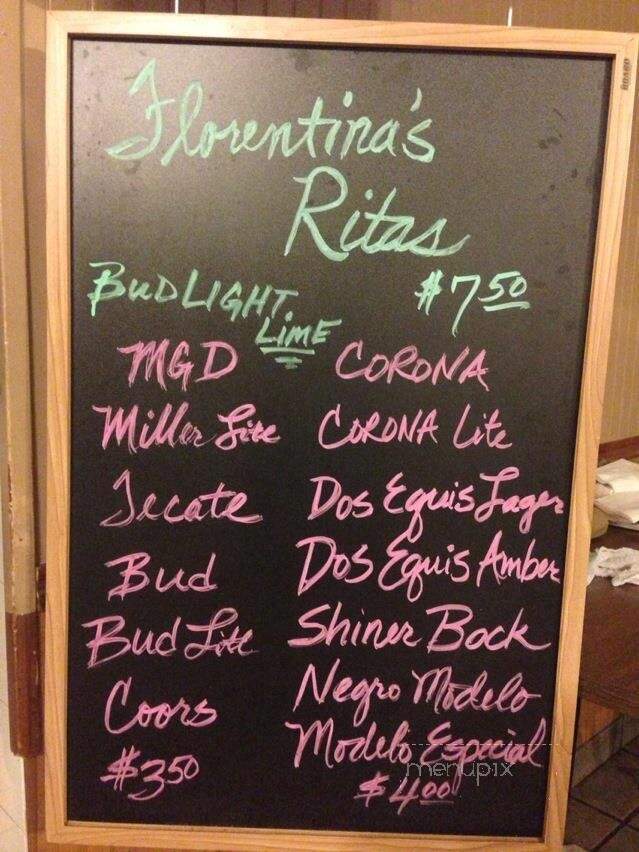 Florentina's
Ritas
BUD LIGHT $7 50
LIME
MGD
Miller Lite
Tecate
Bud
Bud Lite
Coors
$3 50
CORONA
CORONA Lite
Dos Equis Lager
Dos Equis Amber
Shiner Bock
Negro Modelo
Modelo Especial
$4 00
menupix
BOARD